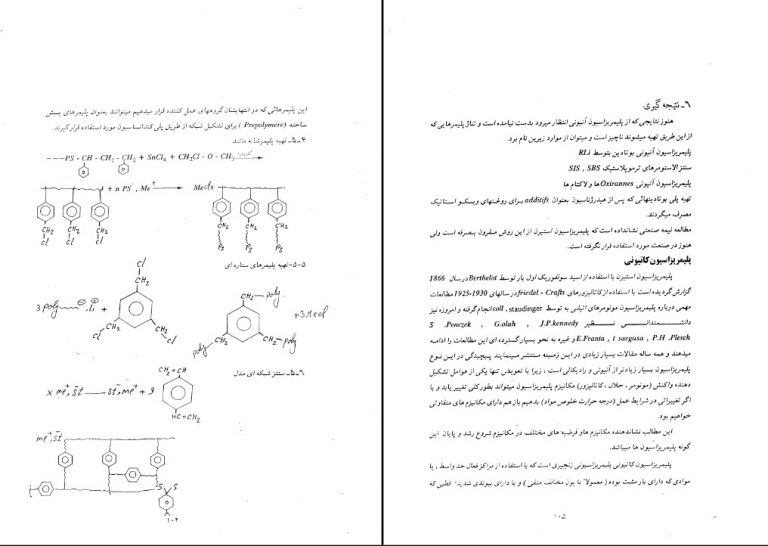 این پلیمرهائی که در انتهایشان گروههای عمل کننده قرار میدهیم میتوانند بعنوان پلیمرهای پیش
ساخته (Prepolymere) برای تشکیل شبکه از طریق پلی کندانسا سیون مورد استفاده قرار گیرند.
۴-۵- تهیه پلیمرشانه مانند
---PS - CH - CH2 - CH2 + SnCl4 + CH2Cl - O - CH3
+ n PS⁻, Me⁺ → MeCl +
CH2 CH2 CH2 CH2 CH2 CH2
Cl Cl Cl PS PS PS
۵-۵- تهیه پلیمرهای ستاره ای
3 poly ⊖, Li ⊕ +
Cl
CH2
CH2 CH2
Cl Cl
CH2—poly
CH2 CH2
poly poly
+3MeCl
۶-۵- سنتز شبکه ای مدل
x me⁺, St⁻ — St⁻, me⁺ + y
CH2=CH
HC=CH2
me⁺, St⁻
S S
۱۰۴
۶- نتیجه گیری
هنوز نتایجی که از پلیمریزاسیون آنیونی انتظار میرود بدست نیامده است و تناژ پلیمرهایی که
از این طریق تهیه میشوند ناچیز است و میتوان از موارد زیرین نام برد.
پلیمریزاسیون آنیونی بوتادین بتوسط RLi
سنتز الاستومرهای ترموپلاستیک SIS , SBS
پلیمریزاسیون آنیونی Oxirannes ها و لاکتام ها
تهیه پلی بوتادینهائی که پس از هیدرژناسیون بعنوان additifs برای روغنهای ویسکو استاتیک
مصرف میگردند.
مطالعه نیمه صنعتی نشانداده است که پلیمریزاسیون استیرن از این روش مقرون بصرفه است ولی
هنوز در صنعت مورد استفاده قرار نگرفته است.
پلیمریزاسیون کاتیونی
پلیمریزاسیون استیرن با استفاده از اسید سولفوریک اول بار توسط Berthelot در سال 1866
گزارش گردیده است با استفاده از کاتالیزورهای friedel - Crafts در سالهای 1930-1925 مطالعات
مهمی درباره پلیمریزاسیون مونومرهای اتیلنی به توسط coll , staudinger انجام گرفته و امروزه نیز
دانشمندانی نظیر J.P.kennedy , G.olah , S .Penczek
E.Franta , t saegusa , P.H .Plesch و غیره به نحو بسیار گسترده ای این مطالعات را ادامه
میدهند و همه ساله مقالات بسیار زیادی در این زمینه منتشر مینمایند پیچیدگی در این نوع
پلیمریزاسیون بسیار زیادتر از آنیونی و رادیکالی است ، زیرا با تعویض تنها یکی از عوامل تشکیل
دهنده واکنش (مونومر ، حلال ، کاتالیزور) مکانیزم پلیمریزاسیون میتواند بطورکلی تغییر یابد و یا
اگر تغییراتی در شرایط عمل (درجه حرارت خلوص مواد) بدهیم باز هم دارای مکانیزم های متفاوتی
خواهیم بود.
این مطالب نشاندهنده مکانیزم ها و فرضیه های مختلف در مکانیزم شروع رشد و پایان این
گونه پلیمریزاسیون ها میباشد.
پلیمریزاسیون کاتیونی پلیمریزاسیونی زنجیری است که با استفاده از مراکز فعال حد واسط ، یا
موادی که دارای بار مثبت بوده (معمولا" با یون مخالف منفی) و یا دارای پیوندی شدیدا" قطبی که
۱۰۵